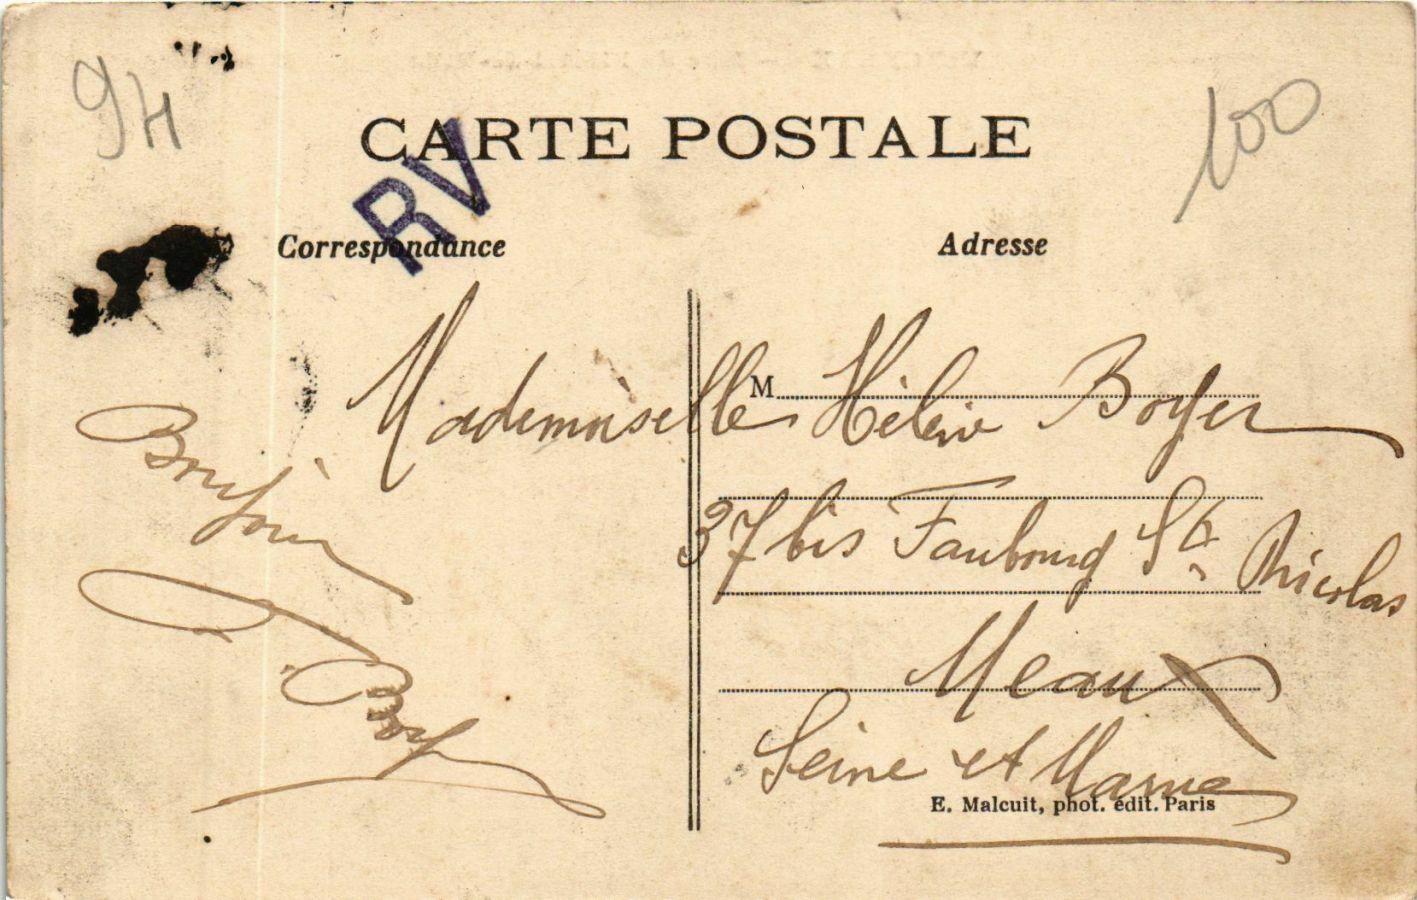 94
100
CARTE POSTALE
RV
Correspondance
Adresse
M
Mademoiselle Hélène Boyer
37 bis Faubourg St. Nicolas
Meaux
Seine et Marne
E. Malcuit, phot. édit. Paris
Bonjour
Boy